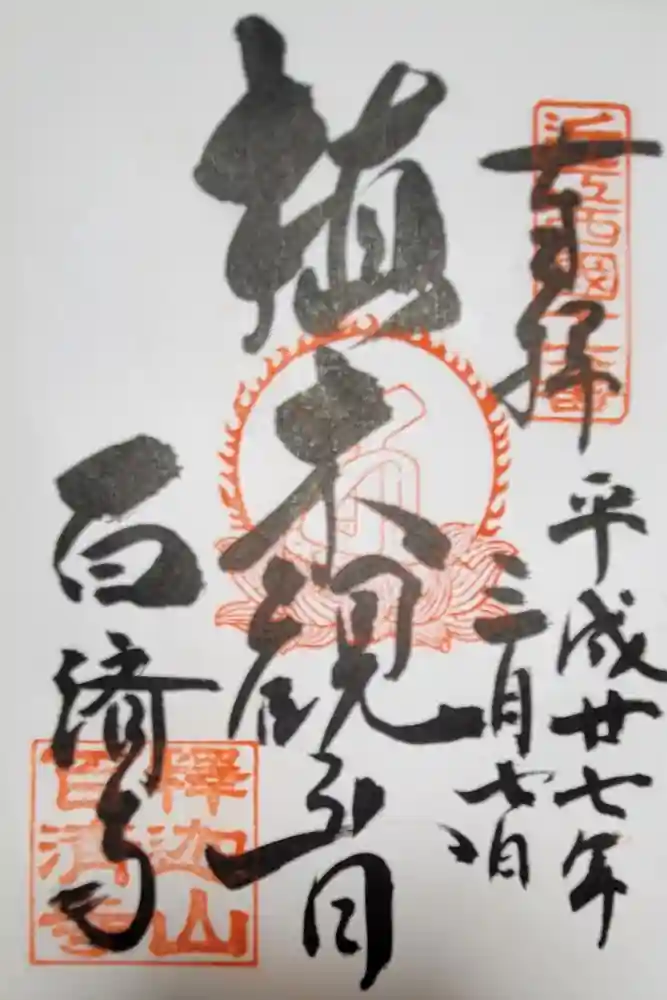 近江西国十六番
奉拝
平成廿七年
三月七日
植木観音
百済寺
釋迦山
百濟寺